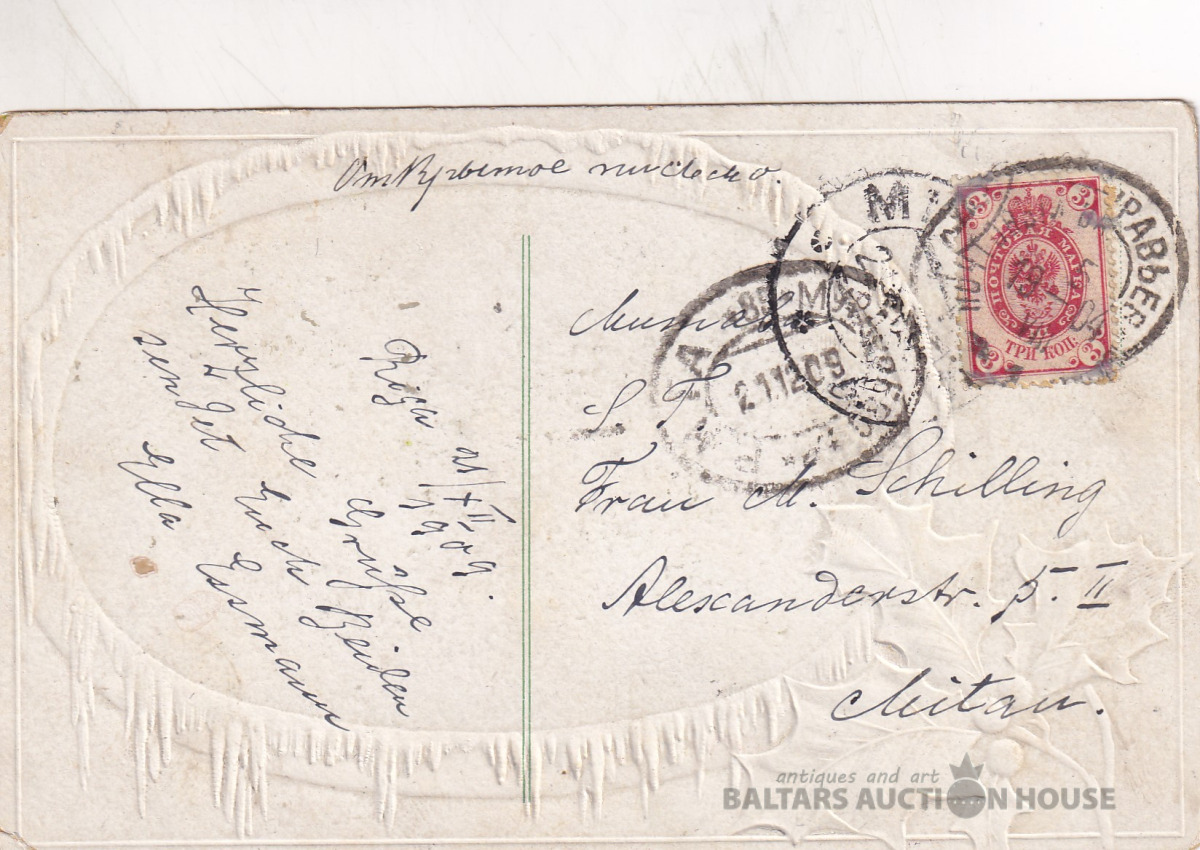 Открытое письмо.
Riga 21/XII 09.
1909.
Herzliche Grüße
sendet Euch Beiden
Ella Essmann
Митава
S. T.
Frau M. Schilling
Alexanderstr. 5. II
Mitau.
ПОЧТОВАЯ МАРКА
ТРИ КОП.
3
3
3
3
2.1.12.09
antiques and art
BALTARS AUCTION HOUSE